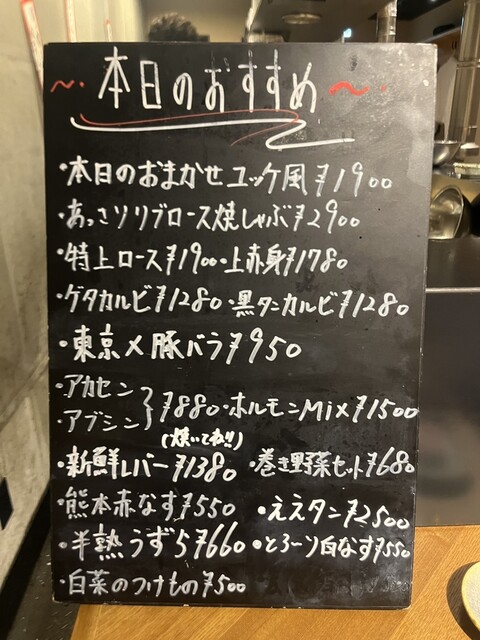 本日のおすすめ
・本日のおまかせユッケ風 ¥1900
・あっさりリブロース焼しゃぶ ¥2900
・特上ロース ¥1900 ・上赤身 ¥1780
・ゲタカルビ ¥1280 ・黒タンカルビ ¥1280
・東京X豚バラ ¥950
・アカセン
・アブシン } ¥880 ・ホルモンMix ¥1500
(焼いてね!!)
・新鮮レバー ¥1380 ・巻き野菜セット ¥680
・熊本赤なす ¥550 ・ええタン ¥2500
・半熟うずら ¥660 ・とろ〜り白なす ¥550
・白菜のつけもの ¥500